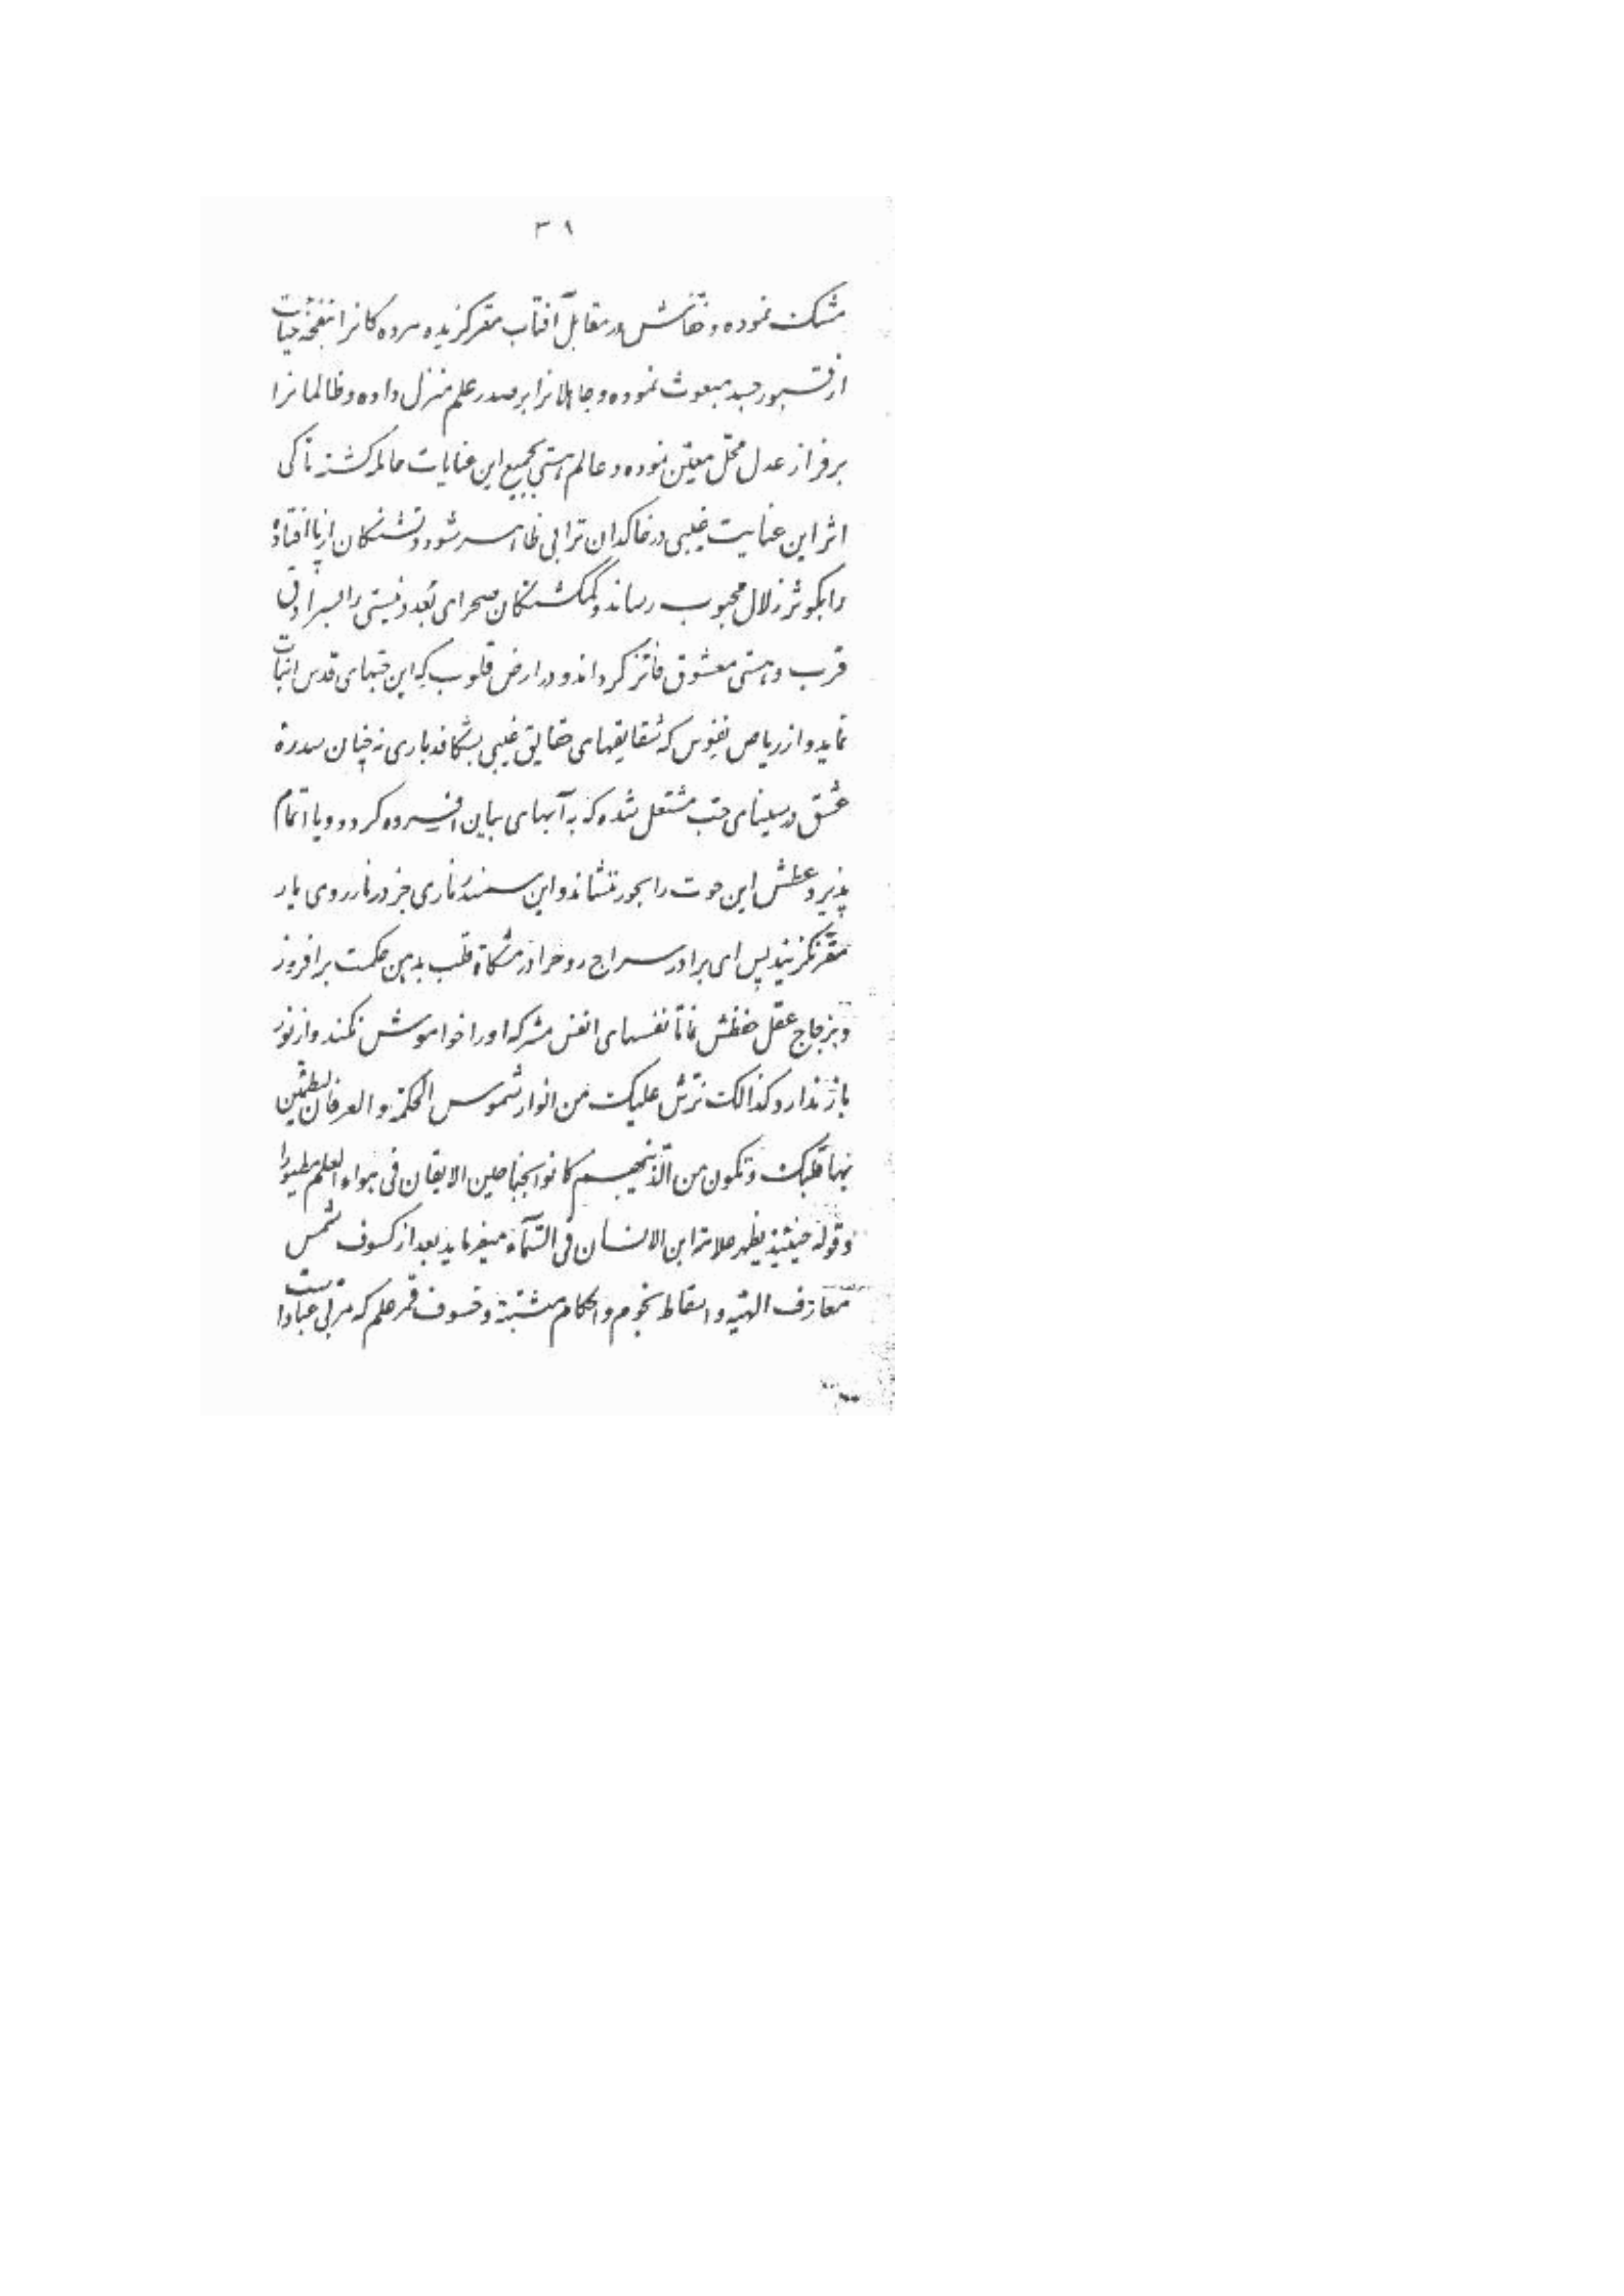 ۳۸
مشک نموده و خفّاش در مقابل آفتاب مقرّ گزیده مرده‌کانرا بنفخهٔ حیات
از قبور جسد مبعوث نموده و جاهلانرا بر صدر علم منزل داده و ظالمانرا
بر فراز عدل محلّ معیّن نموده و عالم هستی بجمیع این عنایات حامله گشته تا کی
اثر این عنایت غیبی در خاکدان ترابی ظاهر شود و تشنگان از پا افتاده
را بکوثر زلال محبوب رساند و گمگشتگان صحرای بُعد و نیستی را بسرادق
قرب و هستی معشوق فائز گرداند و در ارض قلوب که این حبّهای قدس انبات
نماید و از ریاض نفوس که شقایقهای حقایق غیبی بشکافد باری نه چنان سدرهٔ
عشق در سینای حبّ مشتعل شده که به آبهای بیان افسرده گردد و یا اتمام
پذیرد عطش این حوت را بحور ننشاند و این سمندر ناری جز در نار روی یار
مقرّ نگزیند پس ای برادر سراج روح را در مشکاة قلب بدهن حکمت برافروز
و بزجاج عقل حفظش نما تا نفسهای انفس مشرکه او را خواموش نکند و از نور
باز ندارد و کذالک نرشّ علیک من انوار شموس الحکمة و العرفان لیطمئن
بها قلبک و تکون من الّذینهم کانوا بجناحین الایقان فی هواء العلم مطیورا
و قوله حینئذ یظهر علامة ابن الانسان فی السّمآء میفرماید بعد از کسوف شمس
معارف الهیّه و اسقاط نجوم و احکام مثبتة و خسوف قمر علم که مربّی عبادست